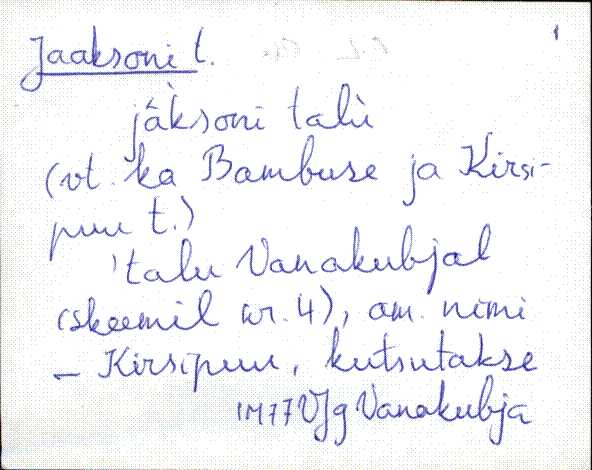 Jaaksoni t.
1
jàksoni talù
(vt. ka Bambuse ja Kirsi-
puu t.)
'talu Vanakubjal
(skeemil nr. 4), am. nimi
– Kirsipuu, kutsutakse
IM77 VJg Vanakubja